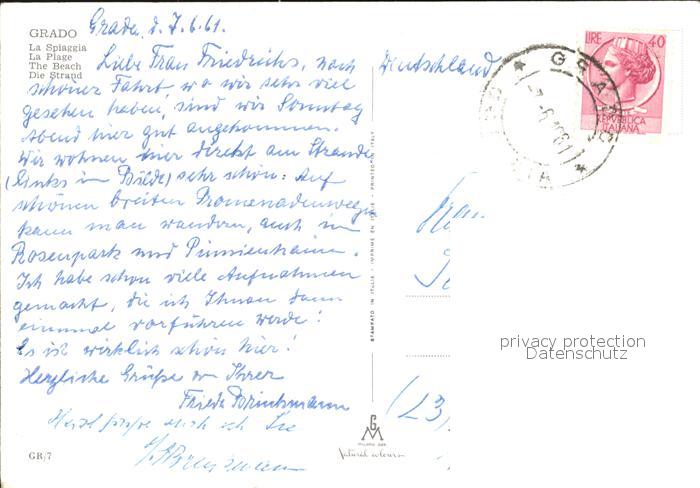 GRADO
La Spiaggia
La Plage
The Beach
Die Strand
Grado, d. 7.6.61.
Liebe Frau Friedrichs, nach
schöner Fahrt, wo wir sehr viel
gesehen haben, sind wir Sonntag
Abend hier gut angekommen.
Wir wohnen hier direkt am Strande
(Links im Bilde) sehr schön. Auf
schönen breiten Promenadenwegen
kann man wandern, auch im
Rosenpark und Pinienhain.
Ich habe schon viele Aufnahmen
gemacht, die ich Ihnen dann
einmal vorführen werde!
Es ist wirklich schön hier!
Herzliche Grüße von Ihrer
Frieda Brinkmann
auch ich Sie
GR/7
STAMPATO IN ITALIE - IMPRIMÉ EN ITALIE - PRINTED IN ITALY
GM
MILANO
Natural colours
Deutschland
LIRE 40
REPUBBLICA
ITALIANA
GRADO
Frau
(23
privacy protection
Datenschutz